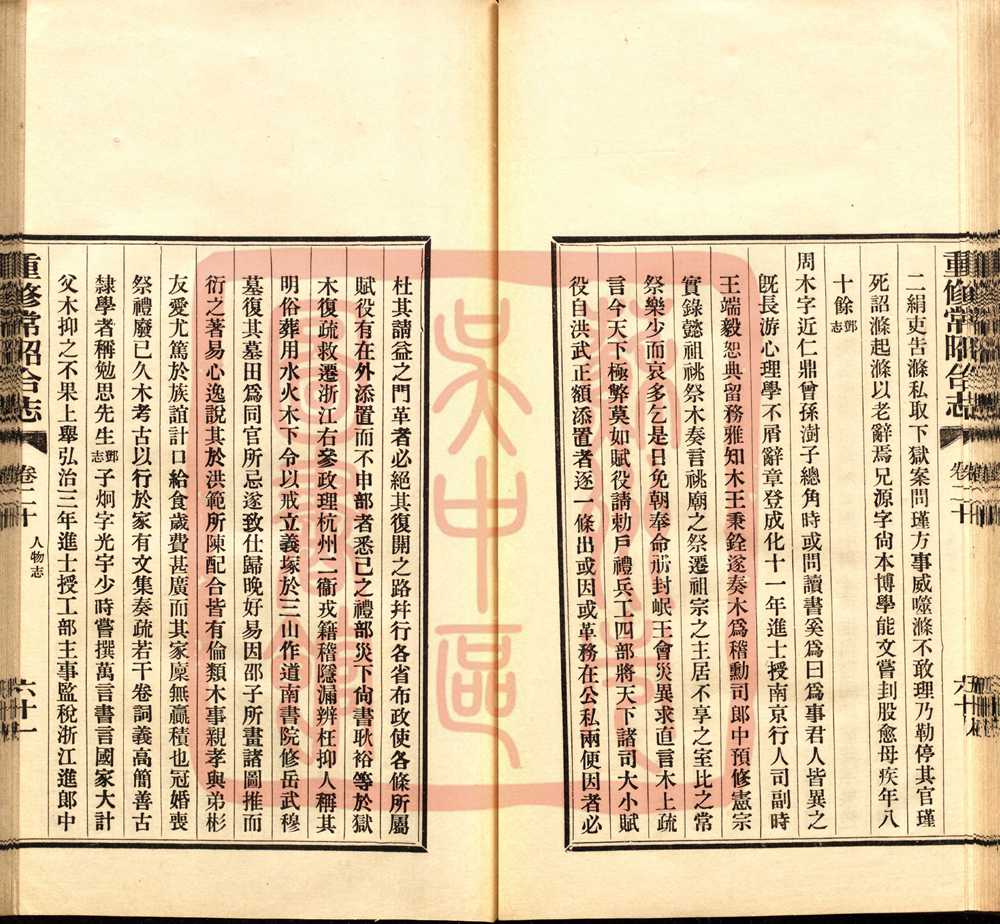 二絹吏告滌私取下獄案問瑾方事威噬滌不敢理乃勒停其官瑾
死詔滌起滌以老辭焉兄源字尙本博學能文嘗刲股愈母疾年八
十餘鄧志
周木字近仁鼎曾孫澍子總角時或問讀書奚爲曰爲事君人皆異之
旣長游心理學不屑辭章登成化十一年進士授南京行人司副時
王端毅恕典留務雅知木王秉銓遂奏木爲稽勳司郎中預修憲宗
實錄懿祖祧祭木奏言祧廟之祭遷祖宗之主居不享之室比之常
祭樂少而哀多乞是日免朝奉命册封岷王會災異求直言木上疏
言今天下極弊莫如賦役請勅戶禮兵工四部將天下諸司大小賦
役自洪武正額添置者逐一條出或因或革務在公私兩便因者必
重修常昭合志
卷二十
六十
杜其請益之門革者必絕其復開之路幷行各省布政使各條所屬
賦役有在外添置而不申部者悉已之禮部災下尙書耿裕等於獄
木復疏救遷浙江右參政理杭州二衞戎籍稽隱漏辨枉抑人稱其
明俗葬用水火木下令以戒立義塚於三山作道南書院修岳武穆
墓復其墓田爲同官所忌遂致仕歸晚好易因邵子所畫諸圖推而
衍之著易心逸說其於洪範所陳配合皆有倫類木事親孝與弟彬
友愛尤篤於族誼計口給食歲費甚廣而其家廩無贏積也冠婚喪
祭禮廢已久木考古以行於家有文集奏疏若干卷詞義高簡善古
隸學者稱勉思先生鄧志子炯字光宇少時嘗撰萬言書言國家大計
父木抑之不果上舉弘治三年進士授工部主事監稅浙江進郎中
重修常昭合志
卷二十
人物志
六十一
吳中區
圖書館